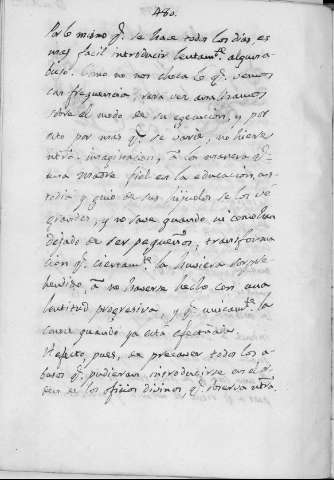 480.
Por lo mismo q.e se hace todos los dias, es
mas facil introducir lentam.te algun a-
buso. Como no nos choca lo q.e vemos
con frequencia, rara vez
sobre el modo de su egecucion, y por
esto por mas q.e se varie, no hiere
ntra. imaginacion, a la manera q.e
una Madre fiel en la educacion, cus-
todia y guio de sus hijuelos se los ve
grandes, y no save quando, ni como han
dejado de ser pequeños, transforma-
cion q.e ciertam.te la huviera sorpre-
hendido, a no haverse hecho con una
lentitud progresiva, y q.e unicam.te la
conoce quando ya está efectuada.
A efecto, pues, de precaver todos los a-
busos q.e pudieran introducirse en el or-
den de los oficios divinos, q.e observa ntra.